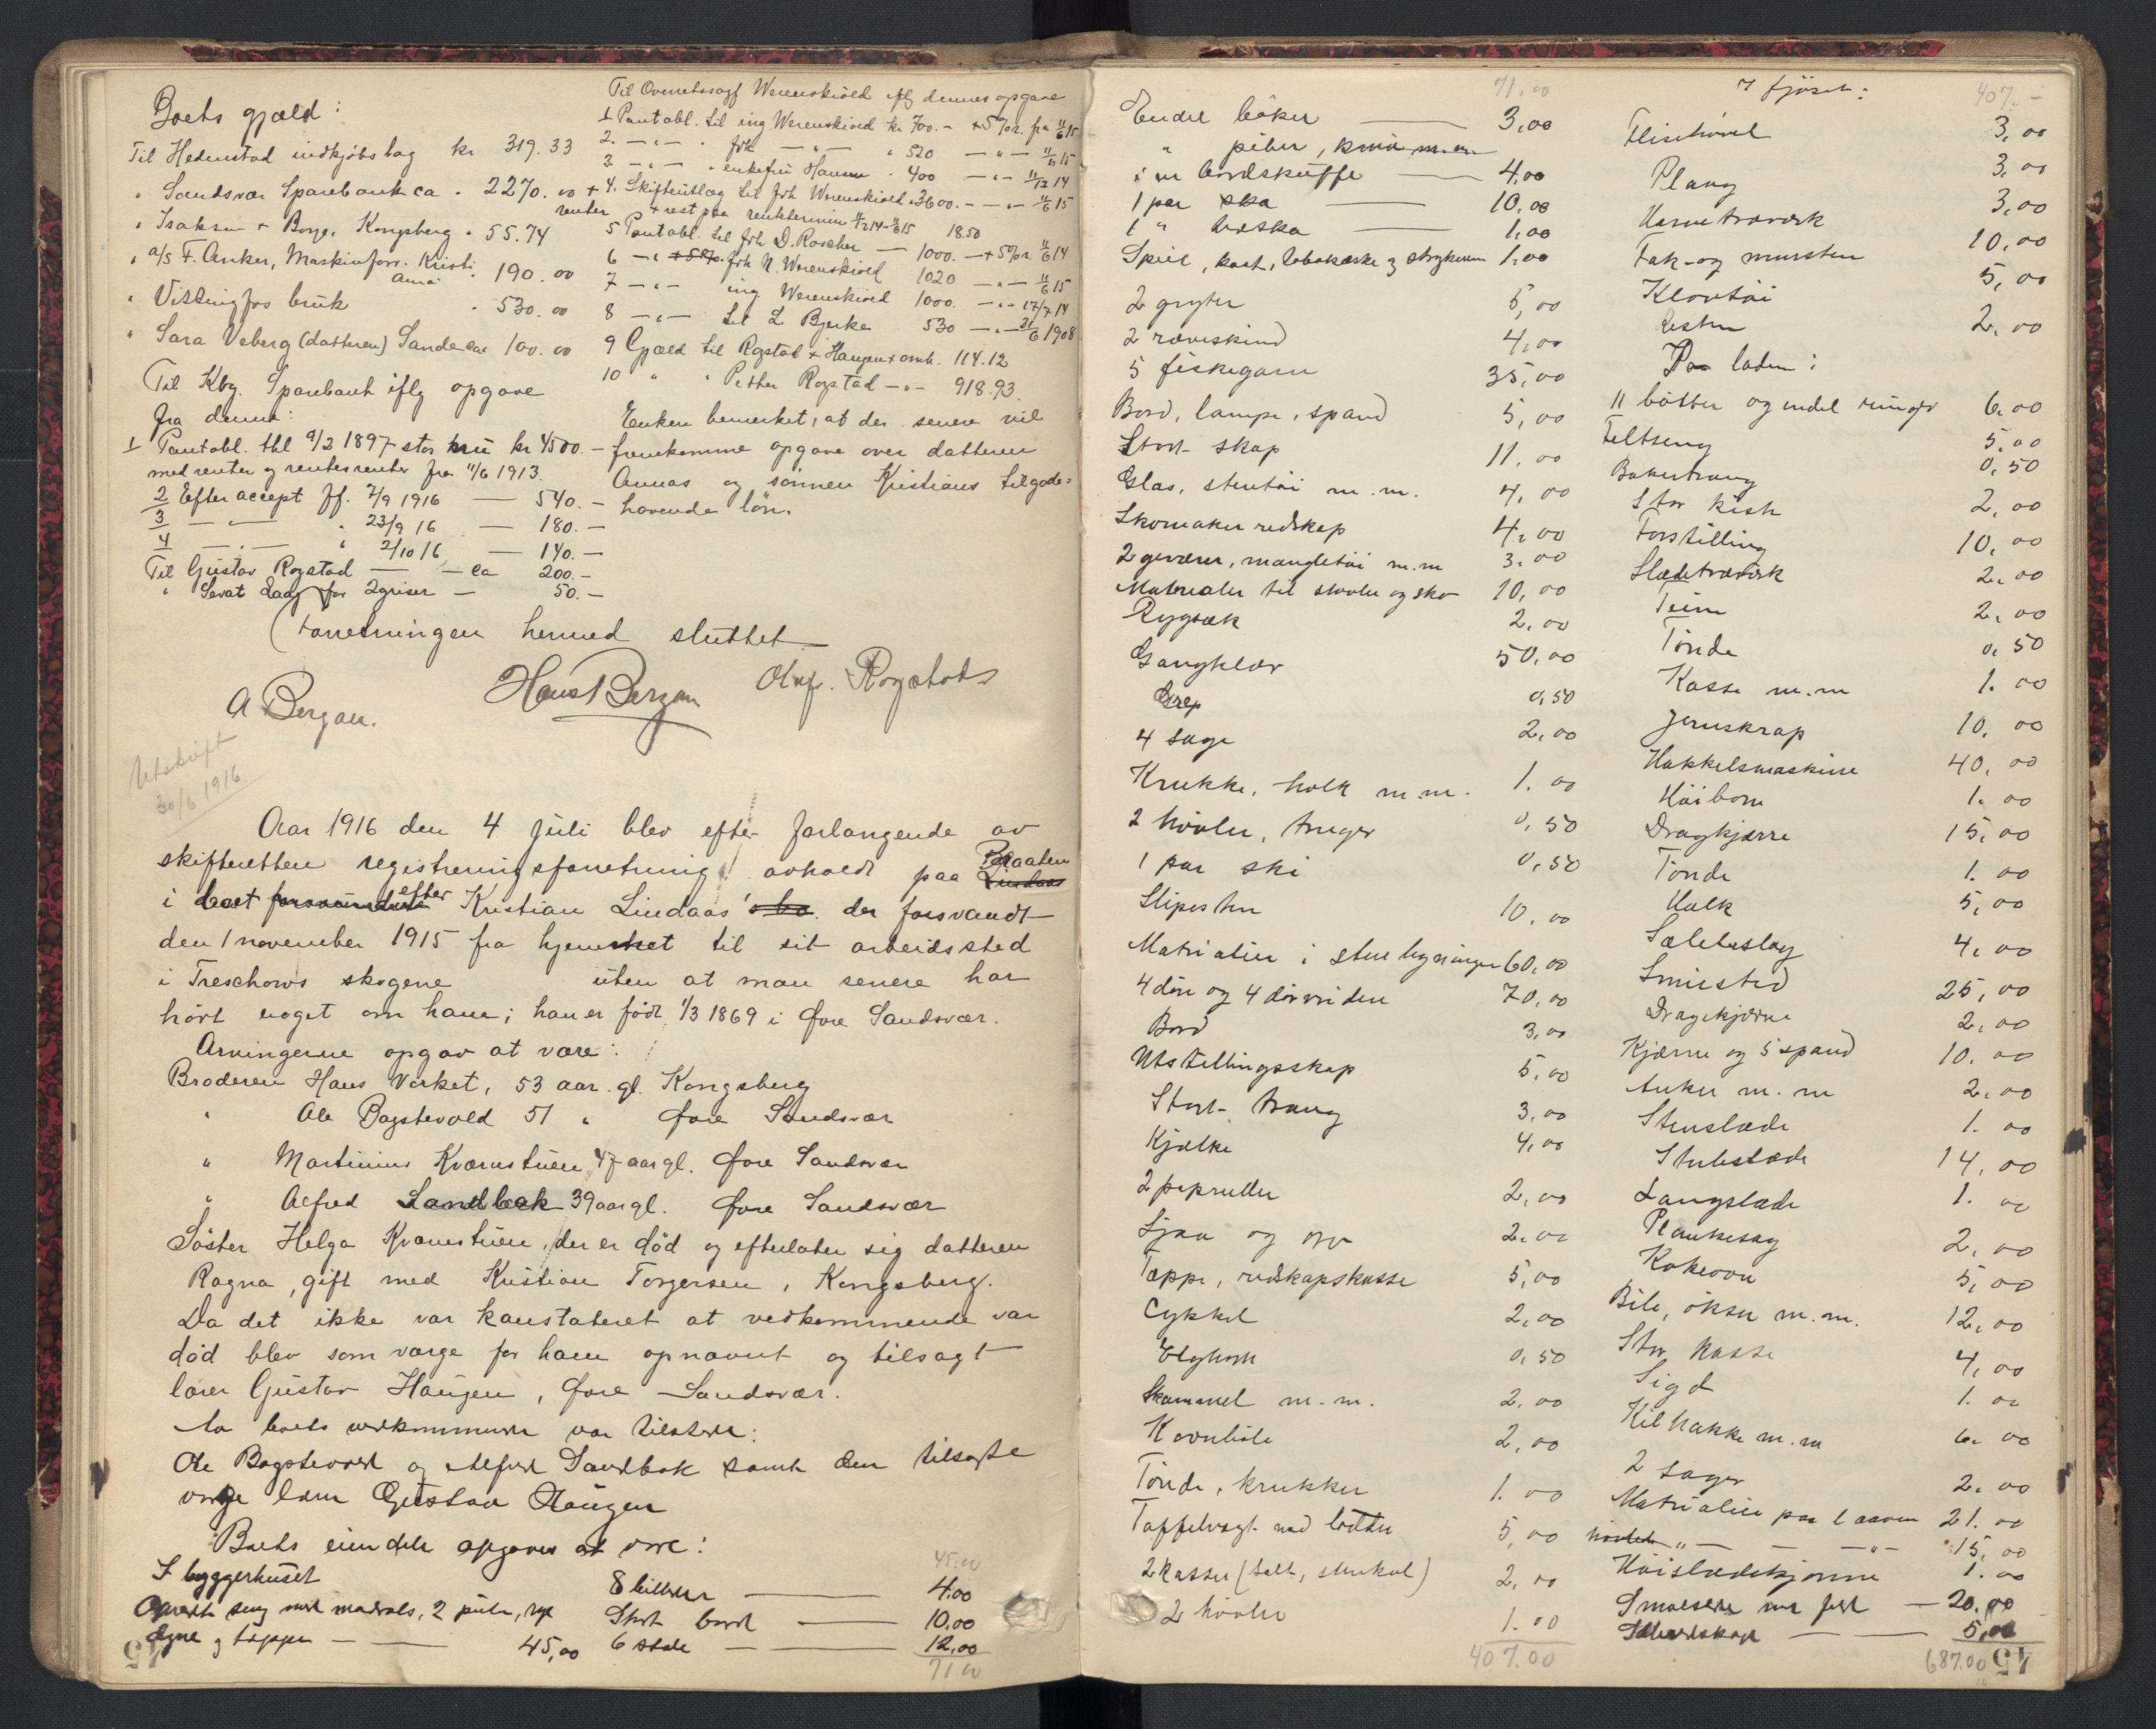 Boets gjæld:
Til Hedenstad indkjøbslag kr 319.33
" Sandsvær Sparebank ca " 2270.00 + renter
" Isaksen + Borge, Kongsberg " 55.74
" a/s F. Anker, Maskinforr. Kristiania " 190.00
" Vittingfos bruk " 530.00
" Sara Veberg (datteren) Sande ca 100.00
Til Kbg. Sparebank iflg opgave
fra denne:
1 Pantobl. thl 9/2 1897 stor kr 4500.-
med renter og rentesrenter fra 11/6 1913.
2 Efter accept ff. 7/9 1916 — 540.-
3 — " — " 23/9 16 — 180.-
4 — " — " 2/10 16 — 140.-
Til Gustav Rogstad — ca 200.-
" Sevat for 2 griser — 50.-
Til Overretssagf Werenskiold iflg dennes opgave
1 Pantobl. til ing Werenskiold kr 700.- + 5% r. fra 11/6 15
2. — " — " frk — " — " 520 — " — 11/6 15
3 — " — " enkefru Hansen " 400 — " — 11/12 14
4. Skifteutlæg til frk Werenskiold " 3600.- — " — 11/6 15
+ rest paa rentetermin 11/12 14 - 11/6 15 18.50
5 Pantobl. til frk D. Roscher — 1000. — + 5% r. 11/6 14
6 — " + 5% frk N. Werenskiold 1020 — " — 11/6 15
7 — " — ing Werenskiold 1000. — " — 17/7 14
8 — " — til L Bjerke 530 — " — 21/6 1908
9 Gjæld til Rogstad + Haugen + omk. 114.12
10 " " Petter Rogstad — " — 918.93.
Enken bemerket, at der senere vil
fremkomme opgave over datteren
Annas og sønnen Kristians tilgode=
havende løn.
Forretningen hermed sluttet
A Bergan. Hans Bergan Olaf. Rogstad
Utskrift
30/6 1916.
Aar 1916 den 4 juli blev efter forlangende av
skifteretten registreringsforretning avholdt paa Braaten
i boet efter Kristian Lindaas der forsvandt
den 1 november 1915 fra hjemmet til sit arbeidssted
i Treschows skogene uten at man senere har
hørt noget om ham; han er født 1/3 1869 i Øvre Sandsvær.
Arvingerne opgav at være:
Broderen Hans Verket, 53 aar. gl. Kongsberg
" Ole Bagstevold 51 " Øvre Sandsvær
" Martinius Kværnstuen, 47 aar gl. Øvre Sandsvær
" Alfred Sandbæk 39 aar gl. Øvre Sandsvær
Søster Helga Kværnstuen, der er død og efterlater sig datteren
Ragna, gift med Kristian Torgersen, Kongsberg.
Da det ikke var konstateret at vedkommende var
død blev som værge for ham opnævnt og tilsagt
lærer Gustav Haugen, Øvre Sandsvær.
Av boets vedkommende var tilstede:
Ole Bagstevold og Alfred Sandbæk samt den tilsagte
værge lærer Gustav Haugen
Boets eiendele opgaves at være:
I byggerhuset
Opredt seng med madrats, 2 puter,
dyne og tæppe — 45,00
45.00
8 billeder — 4.00
Stort bord — 10.00
6 stole — 12.00
71 00
45
71.00
Endel bøker — 3,00
" piber,
i en bordskuffe — 4,00
1 par — 10.00
1 " — 1,00
Speil, kost, tobakæske og strykejern 1.00
2 gryter 5,00
2 ræveskind 4,00
5 fiskegarn 35,00
Bord, lampe, spand 5,00
Stort skap 11.00
Glas, stentøi m.m. 4,00
Skomaker redskap 4,00
2 geværer, mangletøi m.m 3.00
Materialer til støvler og sko 10,00
Rygsæk 2.00
Gangklær 50,00
Grep 0,50
4 sage 2,00
Krukke, holk m.m. 1.00
2 høvler, truger 0,50
1 par ski 0,50
Slipesten 10.00
Matrialier i stue bygningen 60,00
4 døre og 4 dørvriden 70,00
Bord 3,00
Utstillingsskap 5,00
Stort traug 3,00
Kjælke 4,00
2 papruller 2,00
Ljaa og orv 2.00
Tæppe, redskapskasse 5,00
Cykkel 2,00
Elghorn 0,50
Skammel m.m. 2.00
Kornbile 2,00
Tønde, krukker 1.00
Taffelvegt med lodder 5,00
2 Kasser (salt, stenkul) 2,00
2 høvler 1.00
407.00
I fjøset: 407.-
3,00
Plaug 3,00
Harvetræverk 3,00
Tak- og mursten 10,00
Kløvtøi 5,00
Resten 2.00
Paa laden:
11 bøtter og endel 6.00
Feltseng 5.00
Bakertraug 0,50
Stor kiste 2,00
Forstilling 10,00
Slædetræverk 2.00
Teine 2,00
Tønde 0,50
Kasse m.m 1.00
Jernskrap 10.00
Hakkelsmaskine 40,00
Høibom 1.00
Dragkjærre 15,00
Tønde 1.00
Holk 5,00
Sæletøslag 4,00
Smisted 25,00
Dragekjærre 2,00
Kjærne og 5 spand 10.00
Anker m.m 2,00
Stenslæde 1.00
Stubslæde 14,00
Langslæde 1.00
Plankesag 2,00
Kokeovn 5,00
Bile, økser m.m. 12,00
Stor kasse 4,00
Sigd 1.00
Kilhakke m.m 6.00
2 sager 2.00
Matrialier paa laaven 21.00
" — " — 15,00
1.00
— 20.00
— 5,00
687.00
45